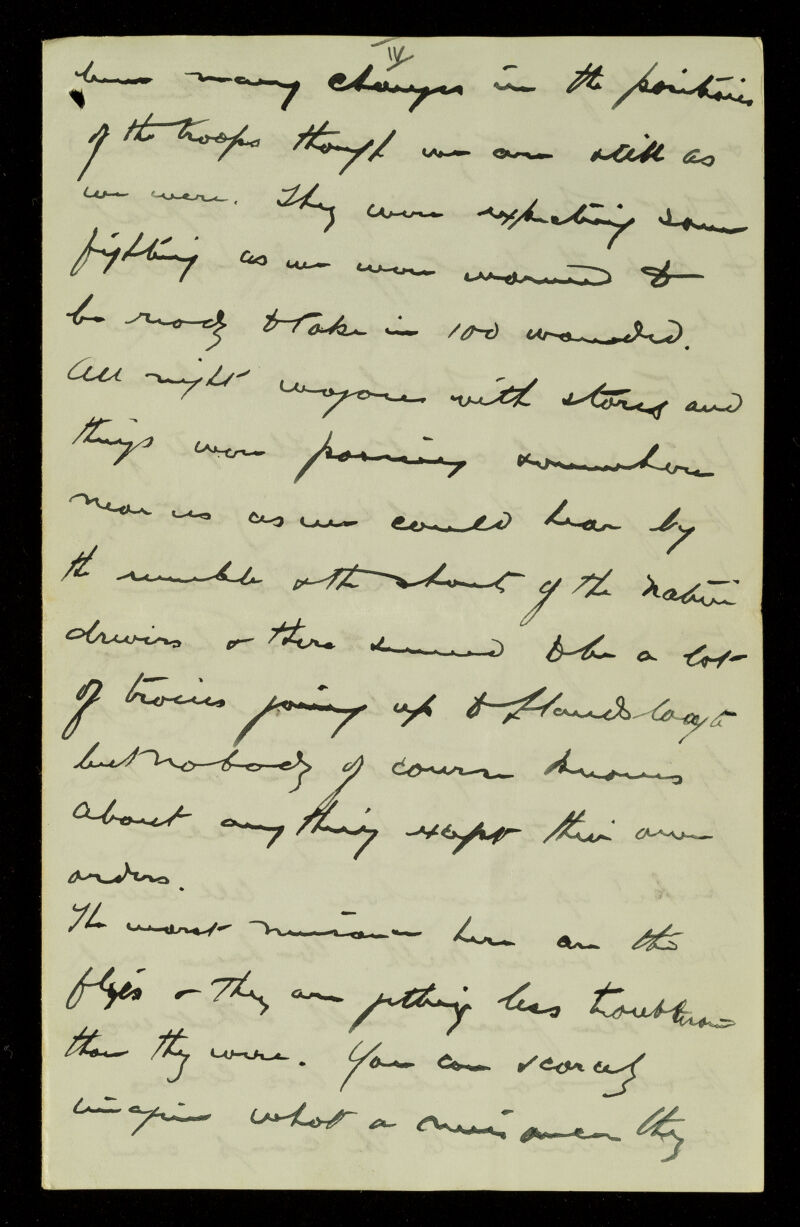 IV
been many changes in the positions
of the troops though we are still as
we were. They were expecting some
fighting as we were warned to
be ready to take in 100 wounded.
All night wagons with stores and
things were passing somewhere
near us as we could hear by
the rumble & the shouts of the native
drivers & there seemed to be a lot
of trains going up to Elandslaagte
but nobody of course knows
about anything except their own
orders.
The worst nuisance here are the
flyes & they are getting less troublesome
than they were. You can scarcely
imagine what a nuisance they